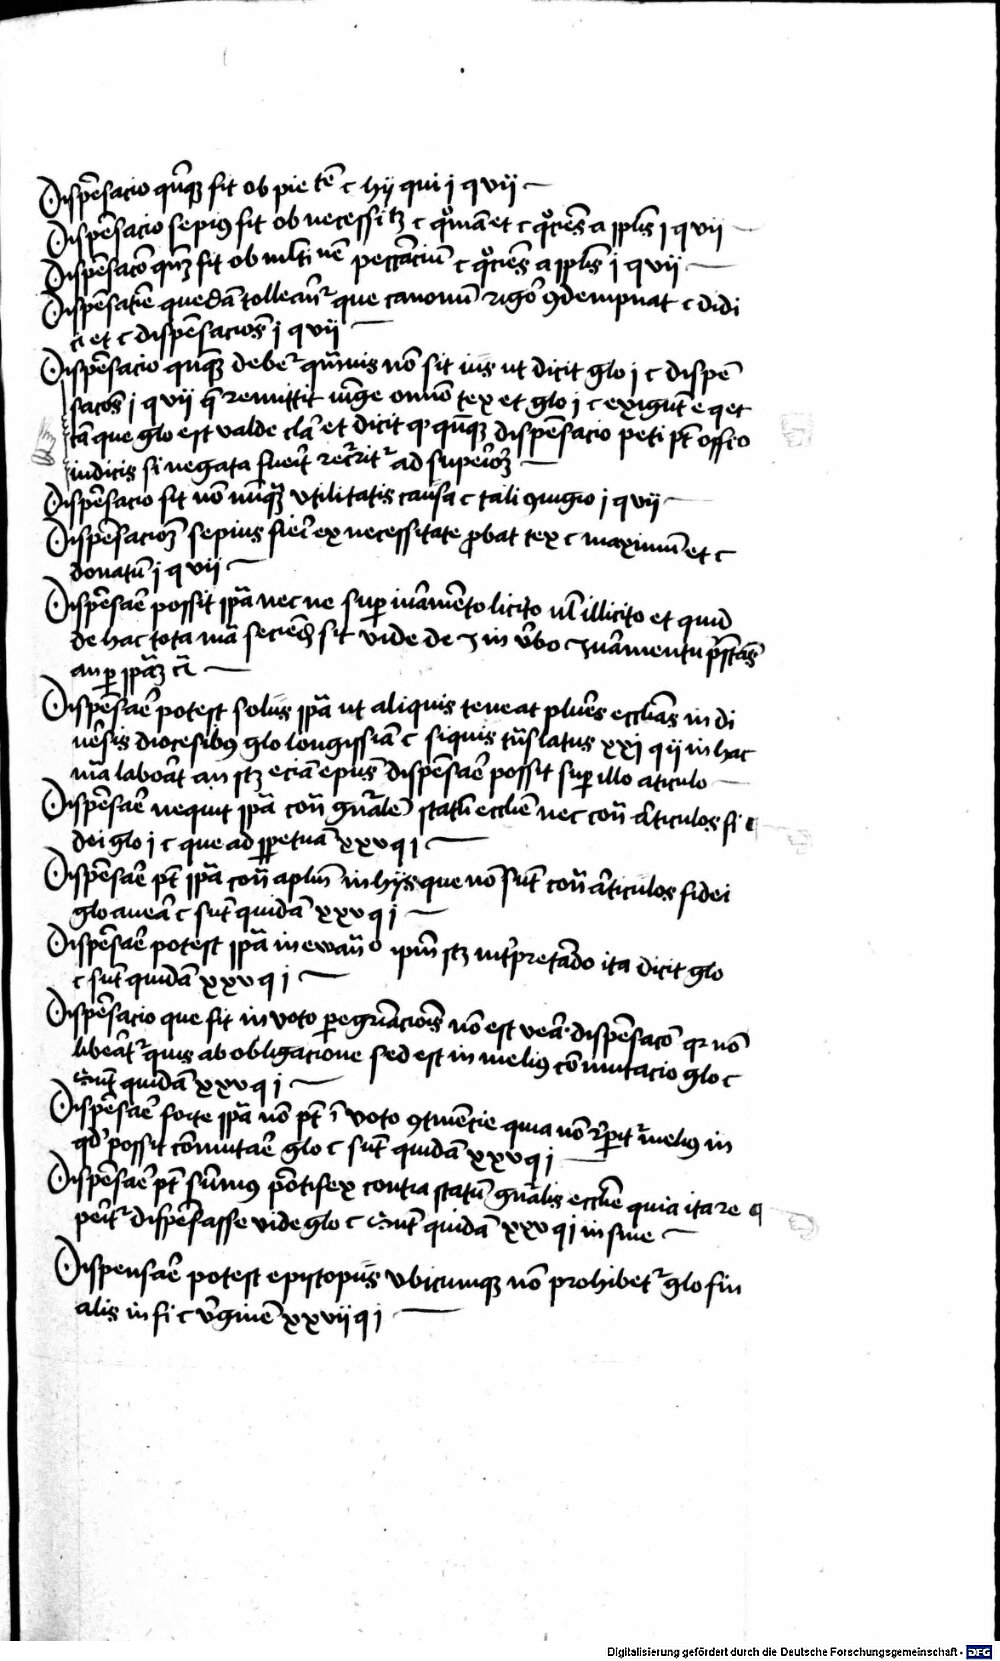 Dispẽsacio qñqꝫ fit ob pie tẽ c hij qui j q vij
Dispẽsacio sepiꝰ fit ob necessitꝫ c qͦniã et c qͦciẽs a ꝓplĩs j q vij
Dispẽsacõ qñqꝫ fit ob mlti nẽ peccãciũ c qͦciẽs a ꝓplĩs j q vij
Dispẽsatiẽ quedã tolleãr̃ que canonũ rigor̃ ꝯdempnãt c didi
ci et c dispẽsaciões j q vij
Dispẽsacio qñqꝫ debet᷑ qͣmuis nõ sit ius ut dicit glo j c dispẽ
sacões j q vij q̃ remittit iũge om̃o tex et glo j c exigũt e q et
tã que glo est valde clãr et dicit ꝙ qñqꝫ dispẽsacio peti pt̃ offĩo
iudicis si negata fuerit recr̃rit᷑ ad supeiorẽ
Dispẽsacio fit nõ nũqꝫ vtilitatis causa c tali ꝯiugio j q vij
Dispẽsacionẽ sepius fieri ex necessitate ꝓbat tex c maximũ et c
donatũ j q vij
Dispẽsar̃e possit ꝓpã nec ne suꝑ iurãmẽto licito vl illicito et quid
de hac tota mã seciẽdũ sit vide de in ṽbo Jurãmentũ p̃stãs
an ꝑ ꝓpãꝫ
Dispẽsar̃e potest solus pãp ut aliquis teneat plur̃es eccl̃ias in di
ũsis diocesibꝰ glo longissiã c siquis tñslatus xxj q ij in hac
mã laborãt an eciã ep̃us dispẽsar̃e possit suꝑ illo articulo
Dispẽsar̃e nequit pãp cõt̃ gñrãlẽ statũ eccl̃ie nec cõt̃ ar̃ticulos fi
dei glo j c que ad ꝑpetuã xxv q j
Dispẽsar̃e pt̃ pãp cõt̃ apl̃m in hijs que nõ sũt cõt̃ ar̃ticulos fidei
glo c sũt quidã xxv q j
Dispẽsar̃e potest pãp in ewãñ ip̃m scꝫ int̃pretãdo ita dicit glo
c sũt quidã xxv q j
Dispẽsacio que fit in voto ꝑegrinãciõis nõ est vera dispẽsacõ qꝛ nõ
liberãt᷑ quis ab obligacione sed est in meliꝰ cõmutacio glo c
Sũt quidã xxv q j
Dispẽsar̃e forte pãp nõ pt̃ ĩ voto ꝯtinẽcie quia nõ rep̃it᷑ meliꝰ in
qd̃ possit cõmutar̃e glo c sũt quidã xxv q j
Dispẽsar̃e pt̃ sũmꝰ põtifex contra statũ gñrãlis eccl̃ie quia ita re
perit᷑ dispẽsasse vide glo c Sũt quidã xxv q j in fine
Dispensar̃e potest episcopus vbicumqꝫ nõ prohibet᷑ glo fin
alis in fi c ṽginẽ xxvij q j
Digitalisierung gefördert durch die Deutsche Forschungsgemeinschaft - DFG